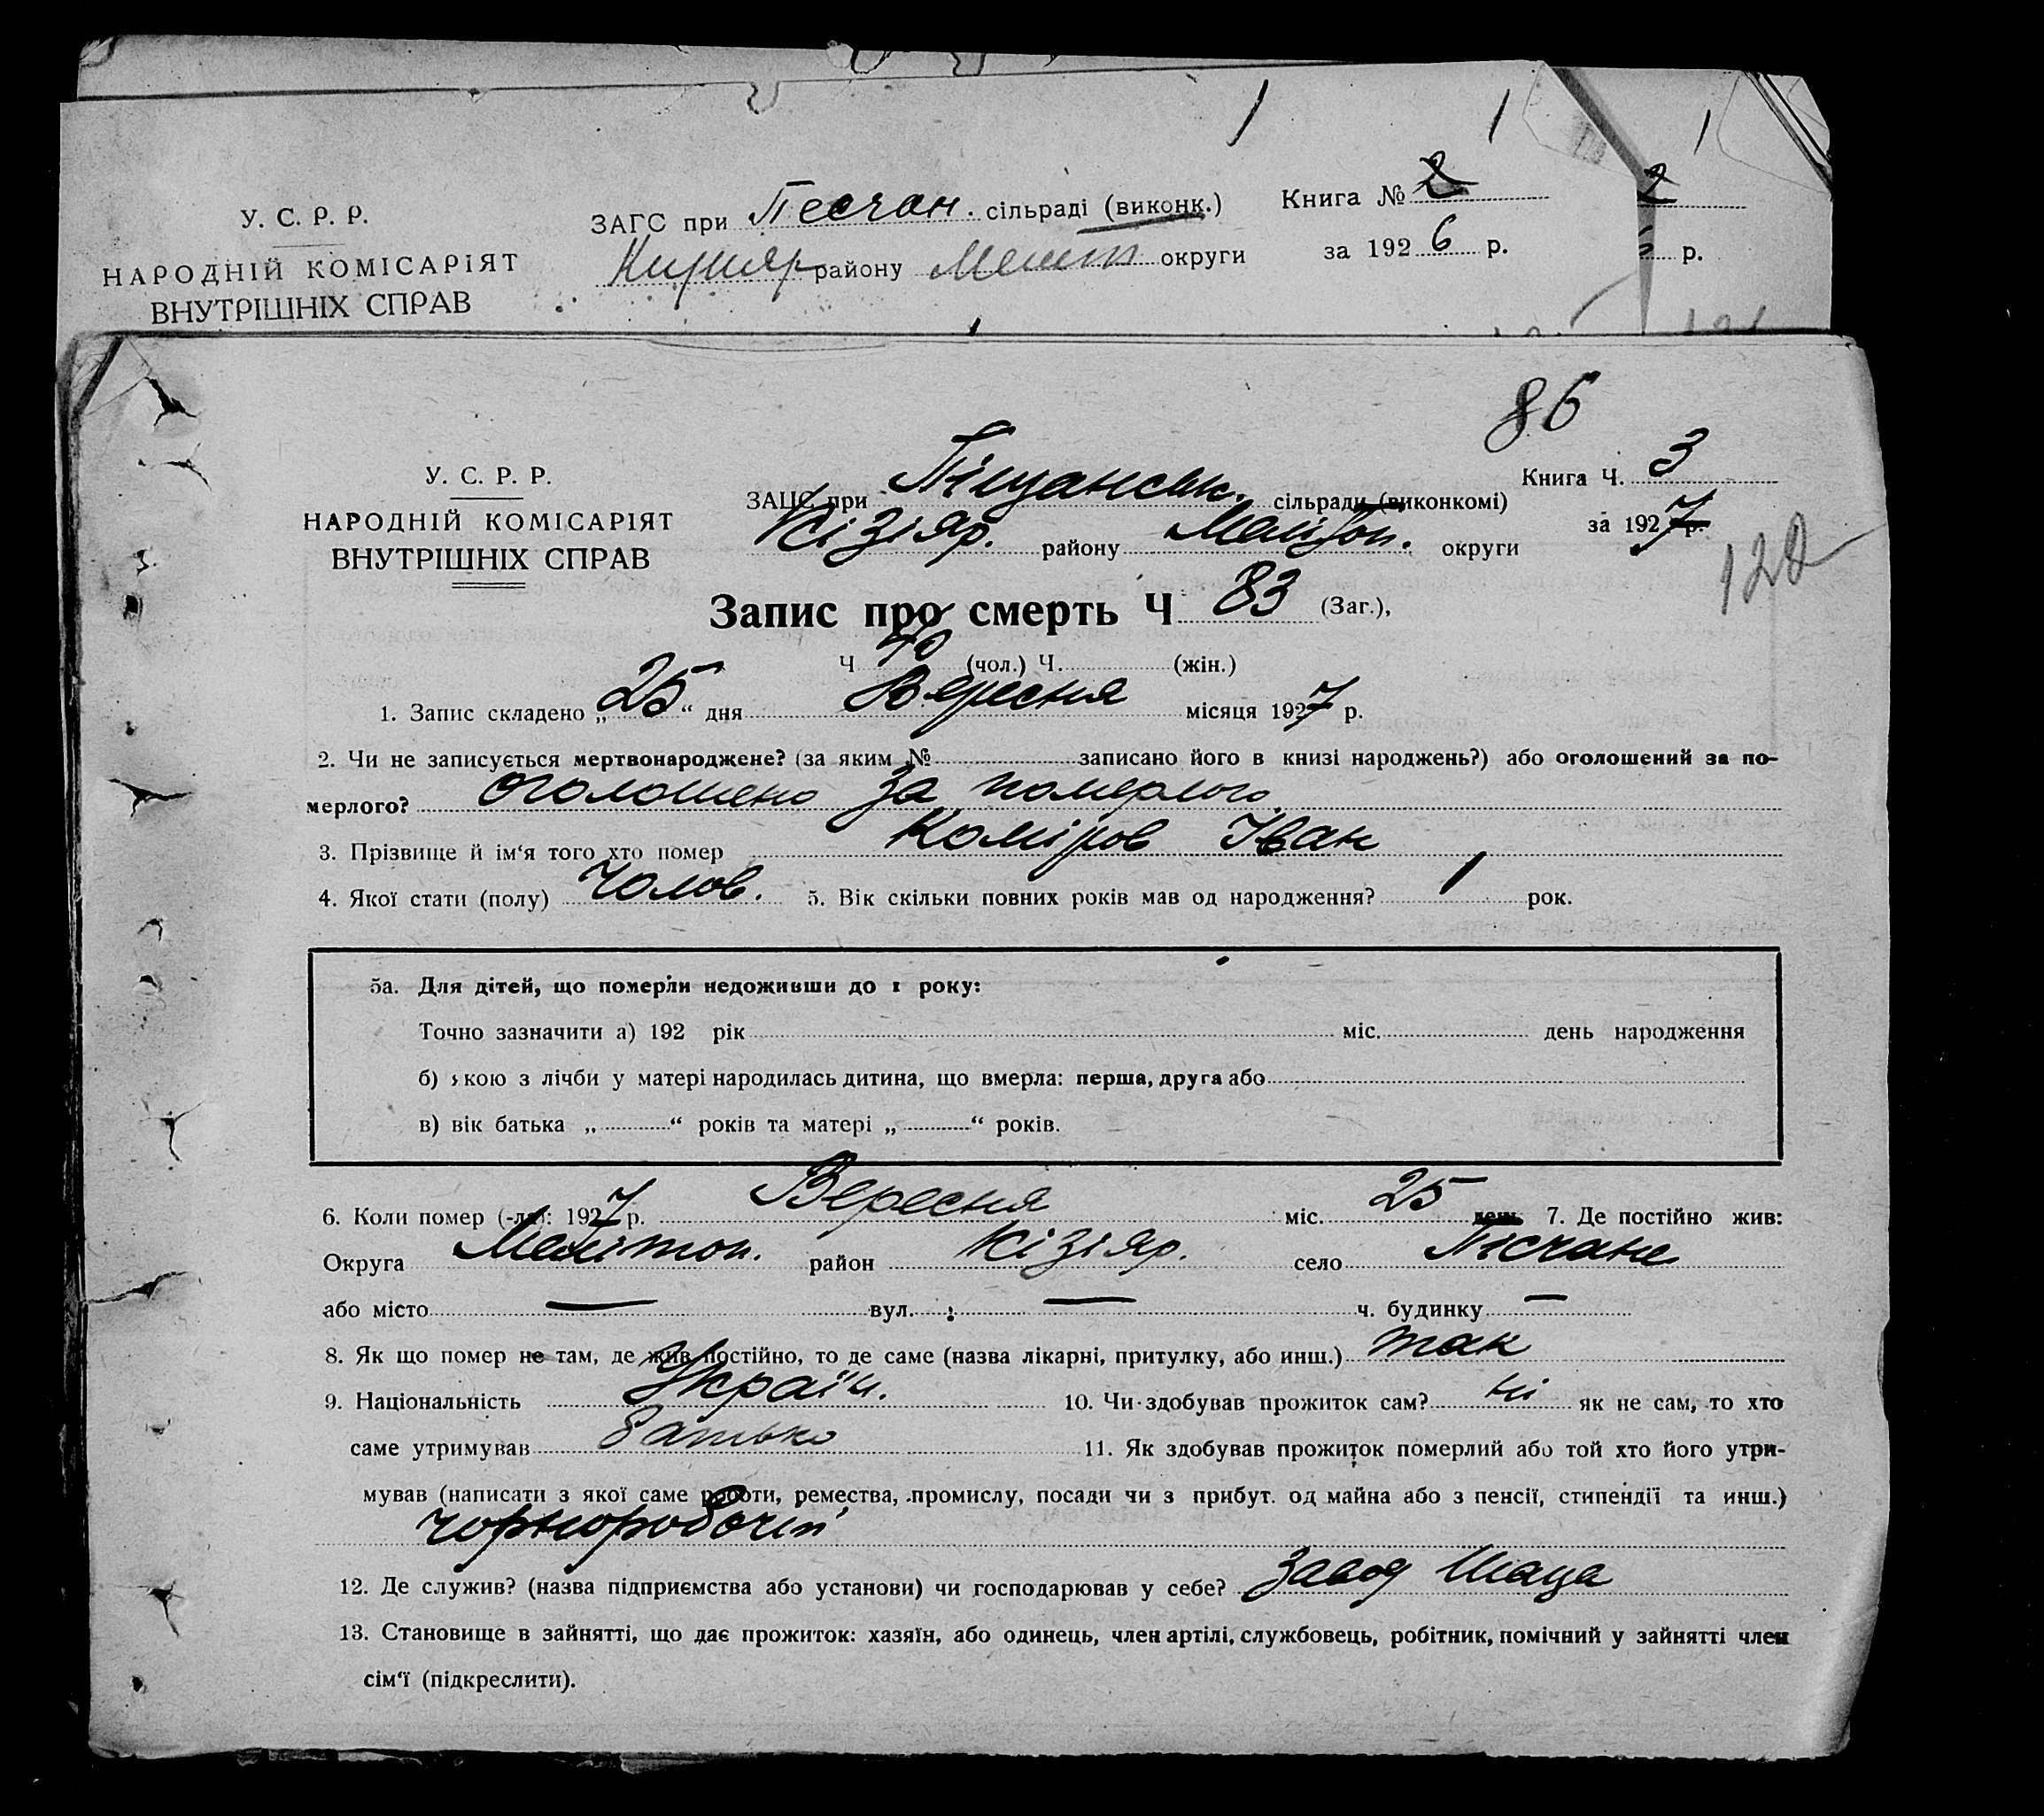 У. С. Р. Р.
НАРОДНІЙ КОМІСАРІЯТ
ВНУТРІШНІХ СПРАВ
ЗАГС при Песчан. сільраді (виконк.)
району Меліт округи
Книга № 2
за 1926 р.
2
р.
86
У. С. Р. Р.
НАРОДНІЙ КОМІСАРІЯТ
ВНУТРІШНІХ СПРАВ
ЗАЦС при Піщанськ. сільради (виконкомі)
Кізіяр. району Меліtоп. округи
Книга Ч. 3
за 1927 р.
122
Запис про смерть Ч 83 (Заг.),
Ч 40 (чол.) Ч. (жін.)
1. Запис складено „25“ дня Вересня місяця 1927 р.
2. Чи не записується мертвонароджене? (за яким № записано його в книзі народжень?) або оголошений за по-
мерлого? оголошено за померлого
3. Прізвище й ім‘я того хто помер Коміров Іван
4. Якої стати (полу) Чолов. 5. Вік скільки повних років мав од народження? 1 рок.
5а. Для дітей, що померли недоживши до 1 року:
Точно зазначити а) 192 рік міс. день народження
б) якою з лічби у матері народилась дитина, що вмерла: перша, друга або
в) вік батька „ “ років та матері „ “ років.
6. Коли помер (-ла): 1927 р. Вересня міс. 25 день 7. Де постійно жив:
Округа Мелітоп. район Кізіяр. село Пісчане
або місто — вул. — ч. будинку —
8. Як що помер не там, де жив постійно, то де саме (назва лікарні, притулку, або инш.) так
9. Національність Україн. 10. Чи здобував прожиток сам? ні як не сам, то хто
саме утримував батько 11. Як здобував прожиток померлий або той хто його утри-
мував (написати з якої саме роботи, ремества, промислу, посади чи з прибут. од майна або з пенсії, стипендії та инш.)
чорноробочій
12. Де служив? (назва підприємства або установи) чи господарював у себе? Завод Шаца
13. Становище в зайнятті, що дає прожиток: хазяїн, або одинець, член артілі, службовець, робітник, помічний у зайнятті член
сім‘ї (підкреслити).